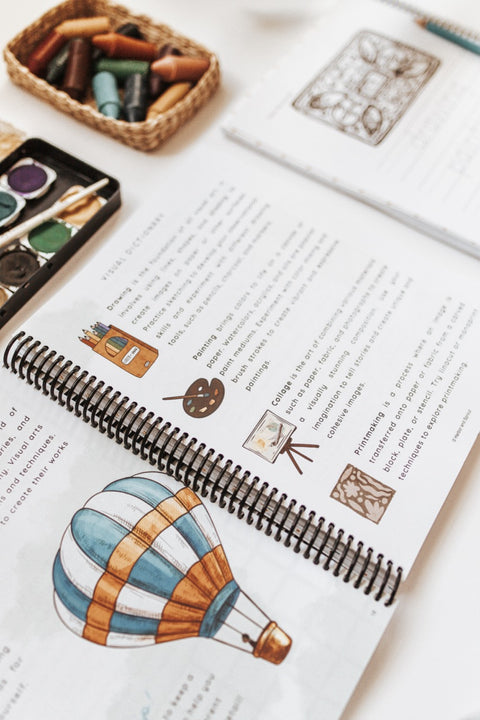 VISUAL DICTIONARY
Drawing is the foundation of all visual
involves using lines, shapes, and shading to
create images on paper or other surfaces.
Practice sketching to develop your observation
skills and experiment with different drawing
tools, such as pencils, charcoal, and markers.
Painting brings colors to life on a canvas or
paper. Watercolors, acrylics, and oils are popular
paint mediums. Experiment with color mixing and
brush strokes to create vibrant and expressive
paintings.
Collage is the art of combining various materials
such as paper, fabric, and photographs to create
a visually stunning composition. Use your
imagination to tell stories and create unique and
cohesive images.
Printmaking is a process where an image is
transferred onto paper or fabric from a carved
block, plate, or stencil. Try linocut or
techniques to explore printmaking.
7
ories, and
ry. Visual arts
ns and techniques,
to create their works
to keep a
help you